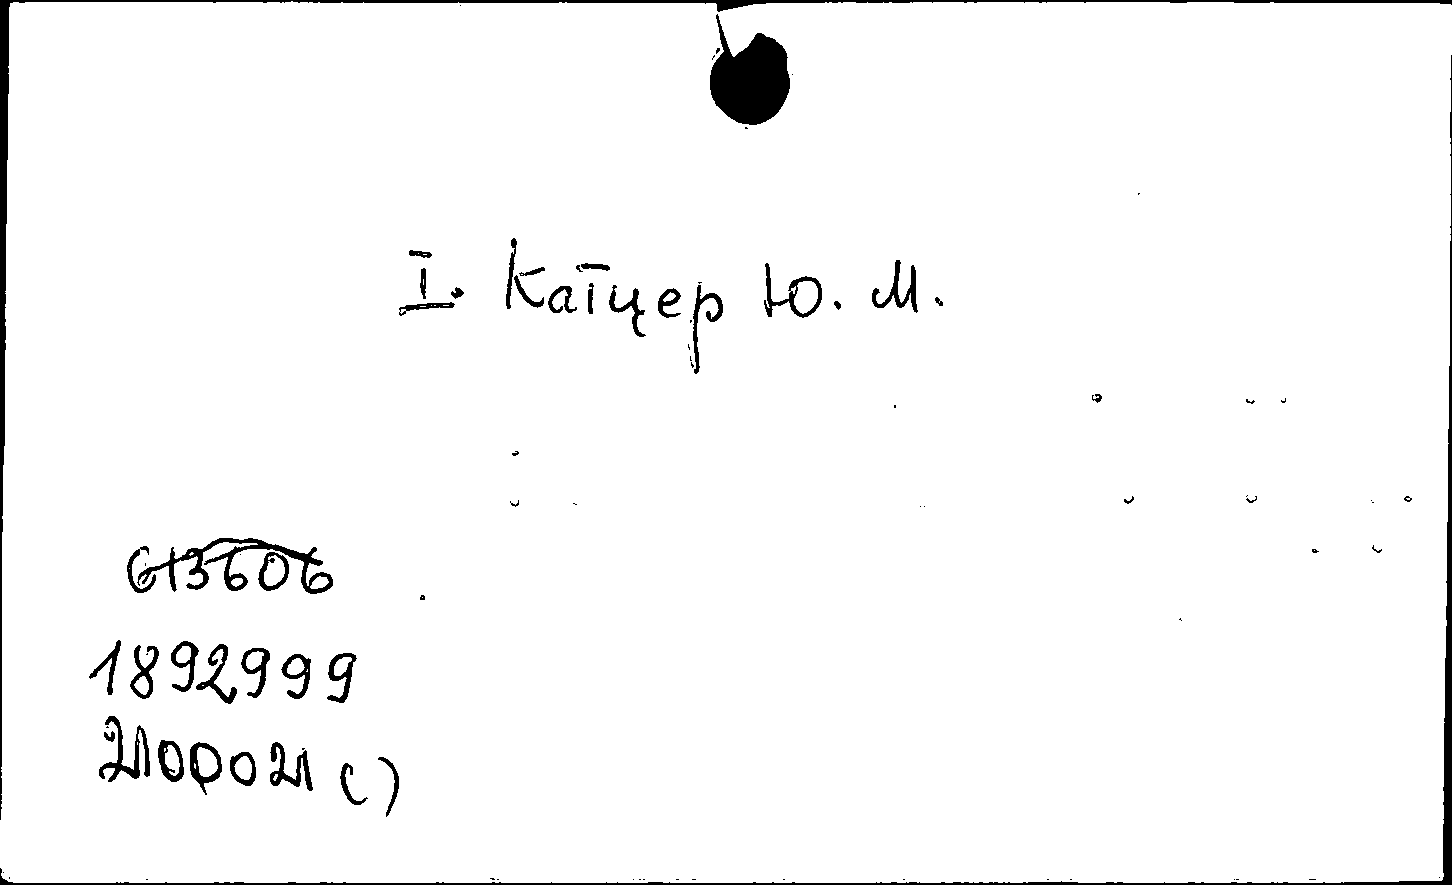 I. Катцер Ю. М.
613606
1892999
2100021 ( )